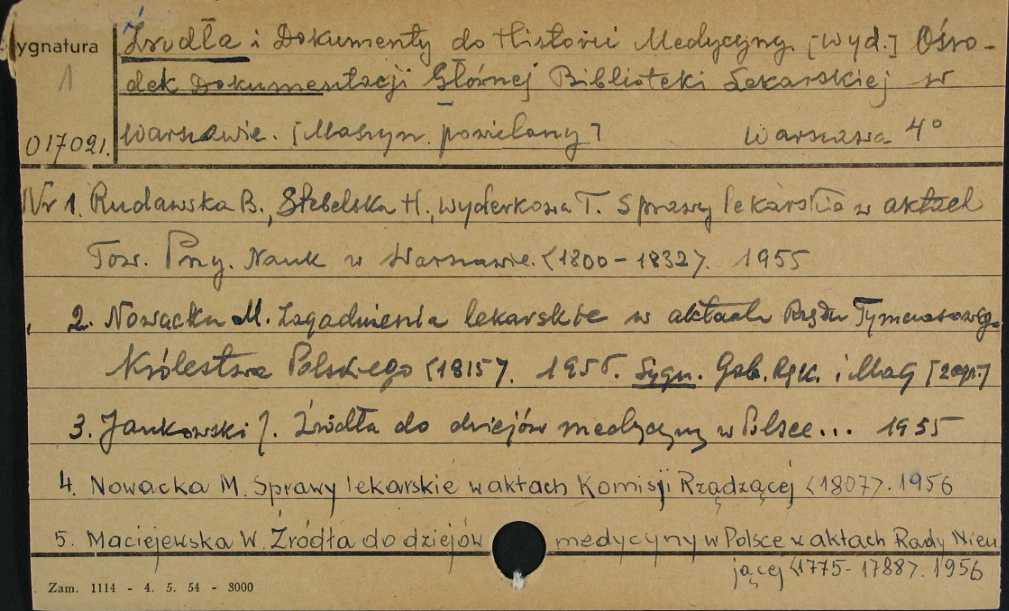 Sygnatura
1
017021.
Źródła i Dokumenty do Historii Medycyny. [Wyd.] Ośro-
dek Dokumentacji Głównej Biblioteki Lekarskiej w
Warszawie. [Maszyn. powielany] Warszawa 4°
Nr 1. Rudawska B., Stebelska H., Wyderkowa T. Sprawy lekarskie w aktach
Tow. Przy. Nauk w Warszawie. <1800-1832>. 1955
2. Nowacka M. Zagadnienia lekarskie w aktach Rządu Tymczasowego
Królestwa Polskiego <1815>. 1955. Sygn. Gab. Ręk. i Mag [2egz.]
3. Jankowski J. Źródła do dziejów medycyny w Polsce... 1955
4. Nowacka M. Sprawy lekarskie w aktach Komisji Rządzącej <1807>. 1956
5. Maciejewska W. Źródła do dziejów medycyny w Polsce w aktach Rady Nieu
jącej <1775-1788>. 1956
Zam. 1114 - 4. 5. 54 - 3000